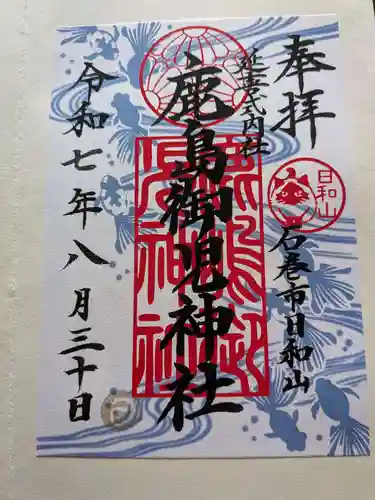 奉拝
延喜式内社
日和山
石巻市日和山
鹿島御児神社
令和七年八月三十日